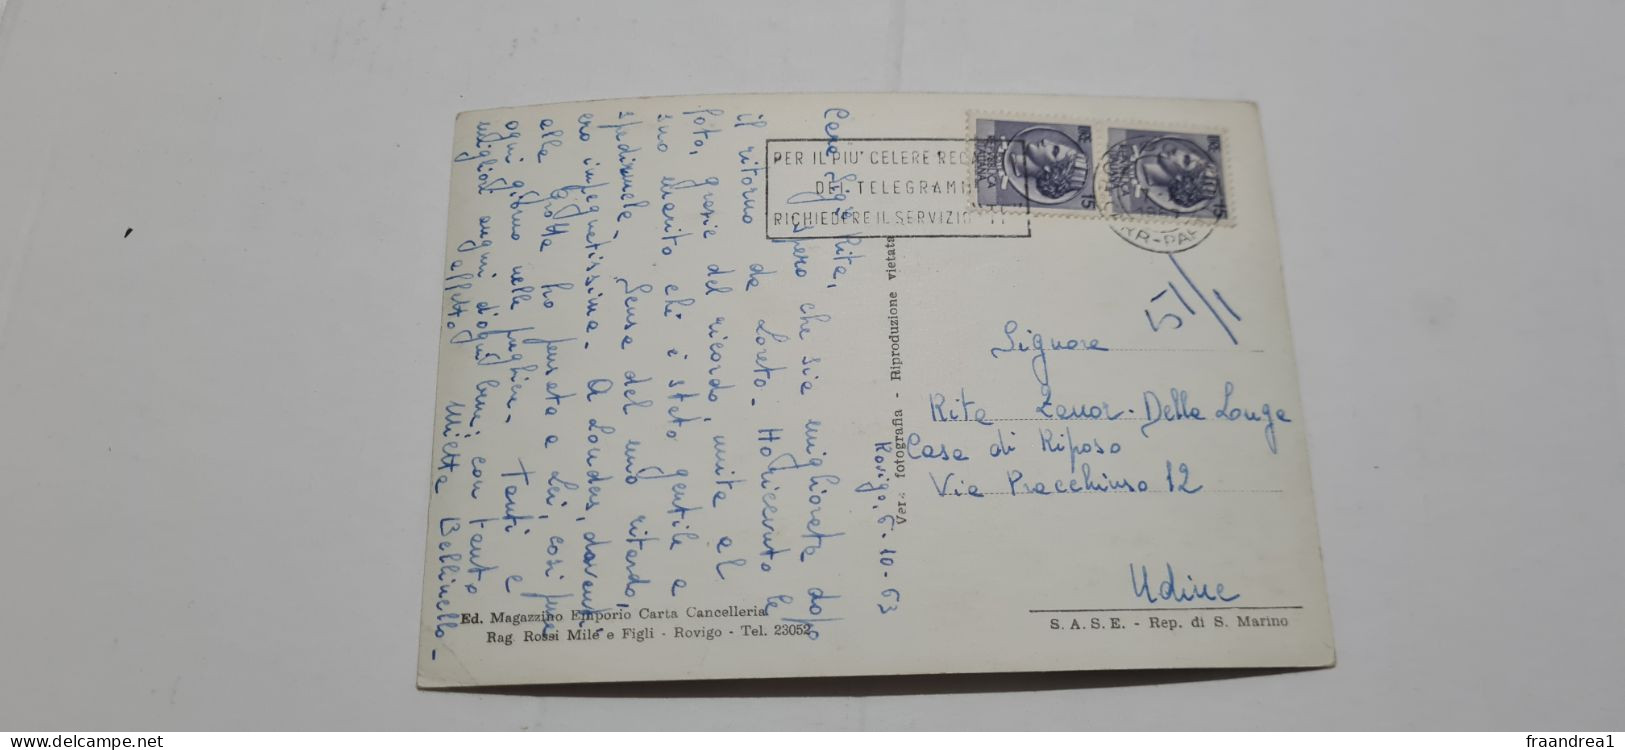 Rovigo, 6-10-63
Cara Sig.ra Rita,
spero che sia migliorata dopo
il ritorno da Loreto. Ho ricevuto le
foto, grazie del ricordo, unita al
suo marito che è stato gentile a
spedirmele. Scusa del mio ritardo,
ero impegnatissima. A Lourdes, davanti
alla Grotta ho pensato a Lei, così pure
ogni giorno nelle preghiere. Tanti e
migliori auguri d'ogni bene, con tanto
affetto Mietta Bellinello.
PER IL PIU' CELERE
DEI TELEGRAMMI
RICHIEDERE IL SERVIZIO
REPVBBLICA ITALIANA
15
REPVBBLICA ITALIANA
15
51/11
Signora
Rita Zanor-Della Longa
Casa di Riposo
Via Pracchiuso 12
Udine
Vera fotografia - Riproduzione vietata
Ed. Magazzino Emporio Carta Cancelleria
Rag. Rossi Milė e Figli - Rovigo - Tel. 23052
S. A. S. E. - Rep. di S. Marino
www.delcampe.net
fraandrea1